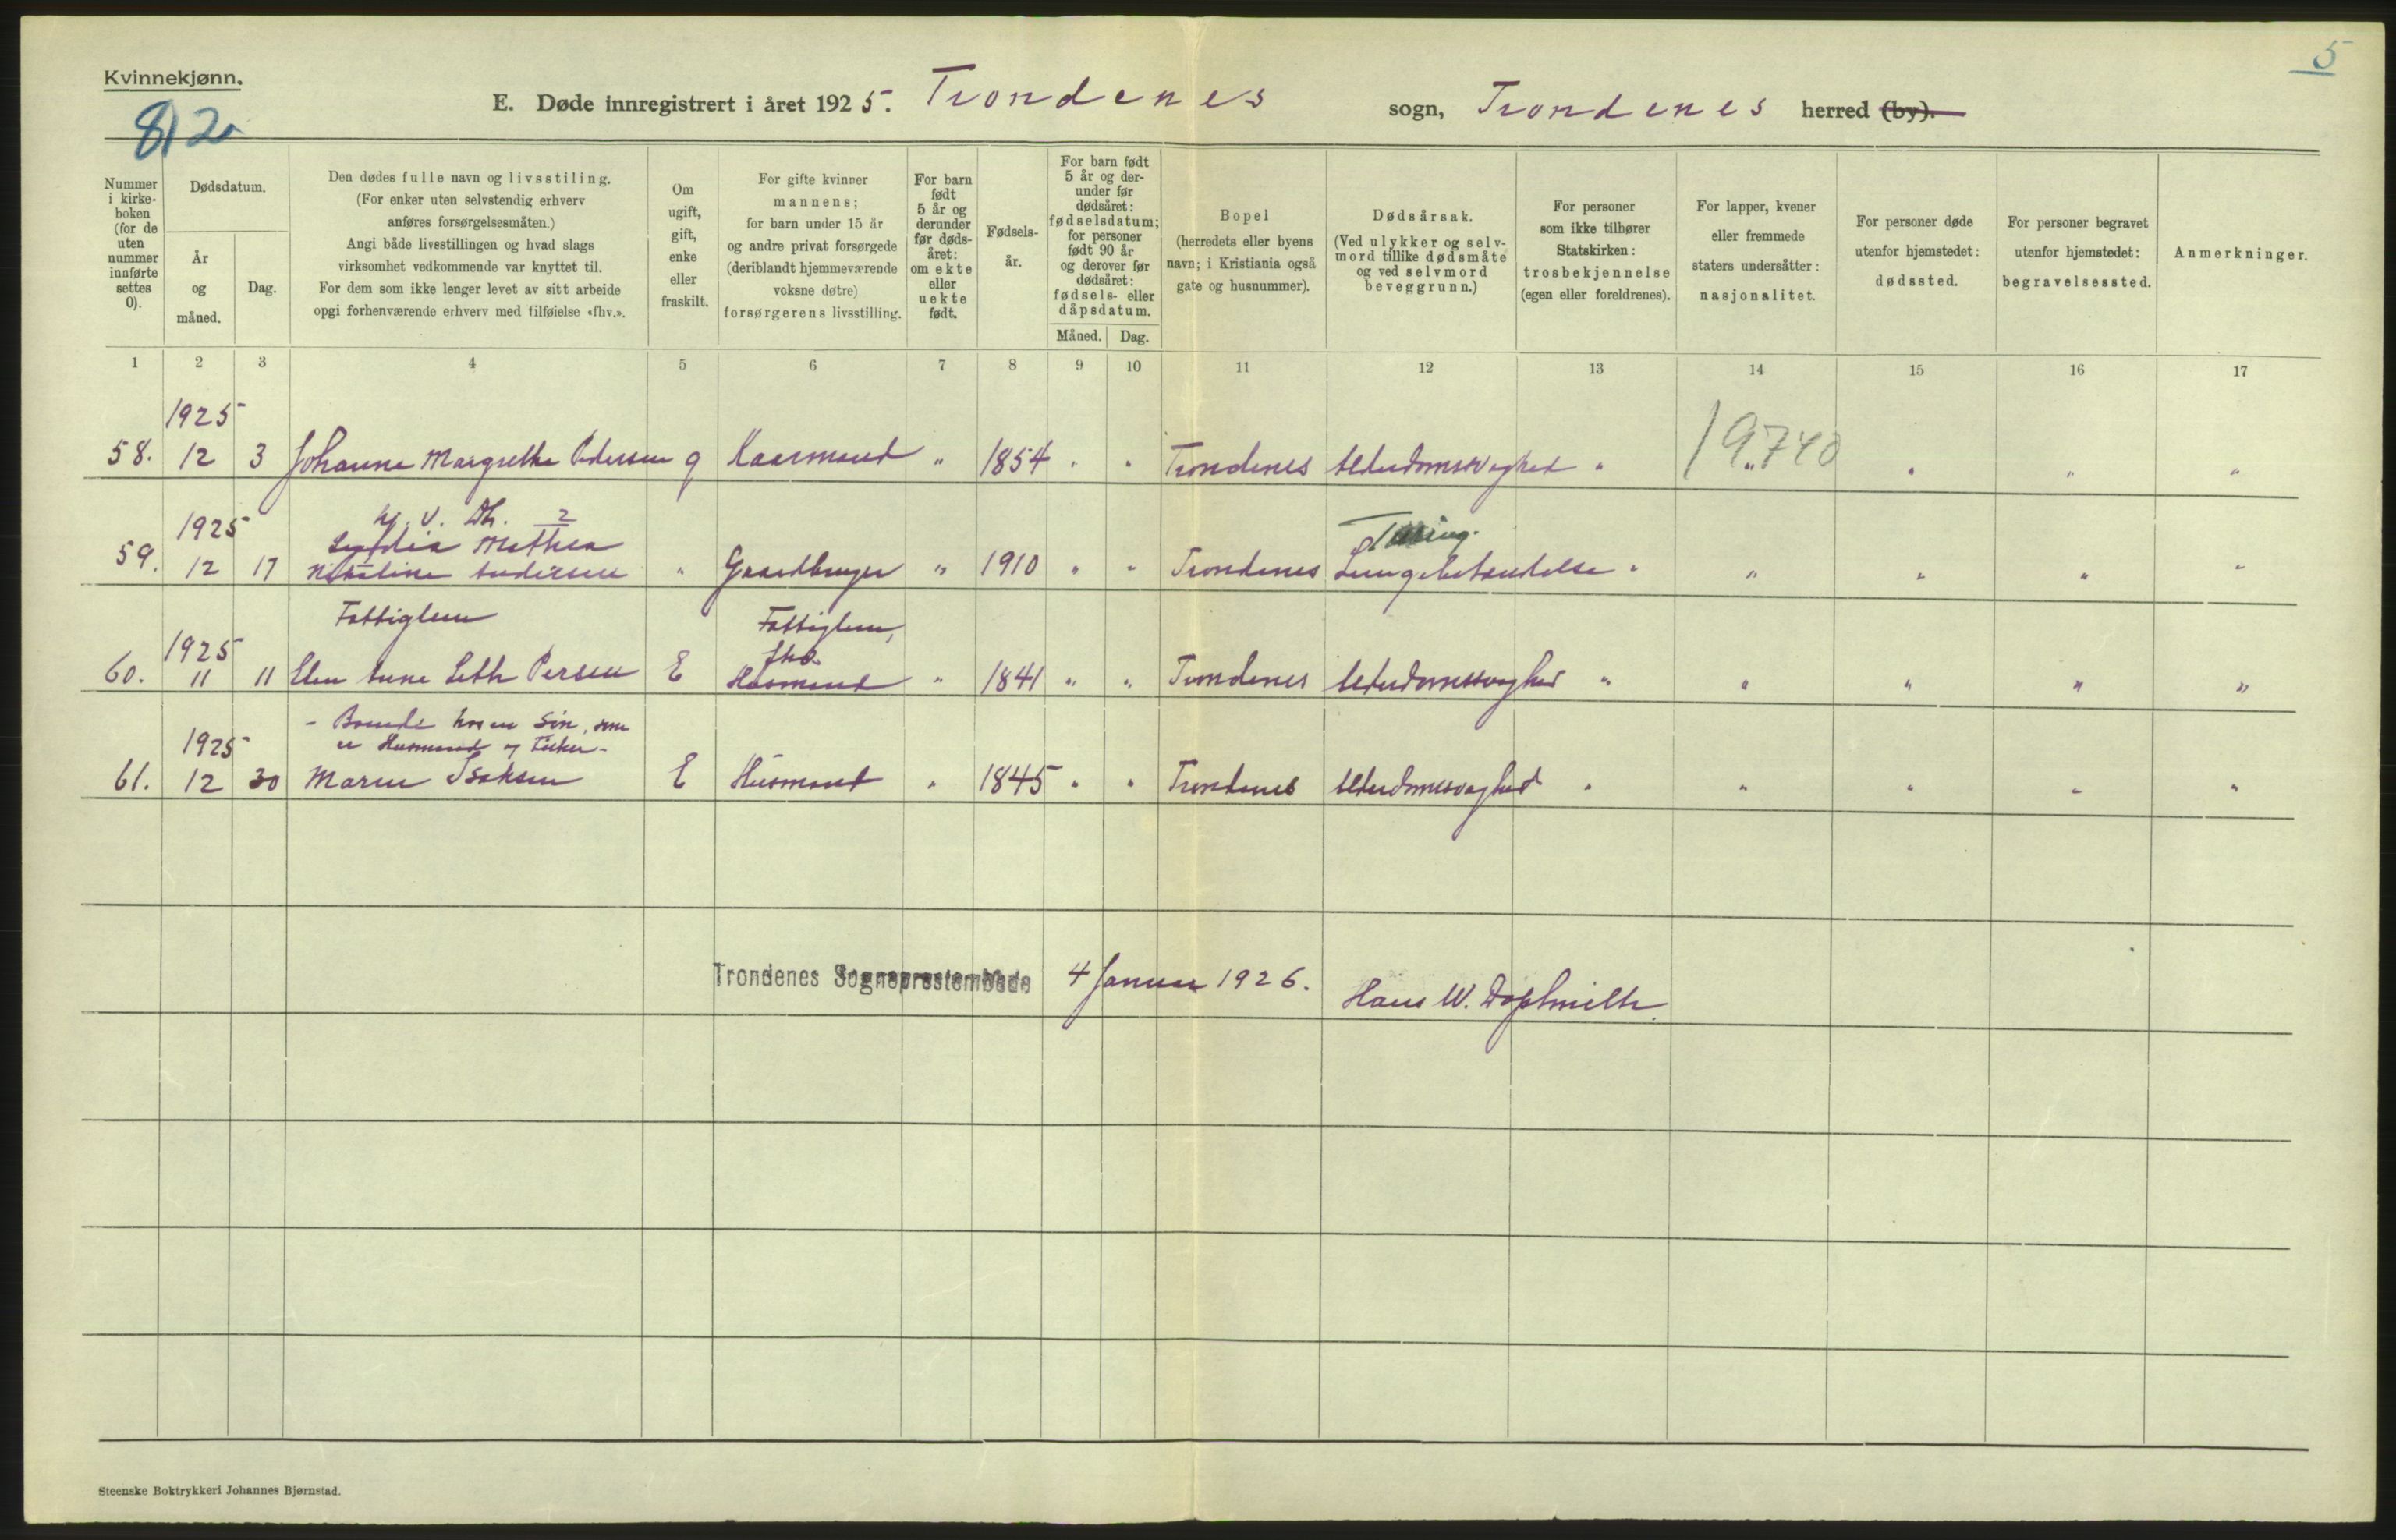 Kvinnekjønn.
8)2
5
E. Døde innregistrert i året 1925. Trondenes sogn, Trondenes herred (by).
Nummer i kirke-boken (for de uten nummer innførte settes 0).
Dødsdatum.
År og måned.
Dag.
Den dødes fulle navn og livsstiling.
(For enker uten selvstendig erhverv
anføres forsørgelsesmåten.)
Angi både livsstillingen og hvad slags
virksomhet vedkommende var knyttet til.
For dem som ikke lenger levet av sitt arbeide
opgi forhenværende erhverv med tilføielse «fhv.».
Om ugift, gift, enke eller fraskilt.
For gifte kvinner
mannens;
for barn under 15 år
og andre privat forsørgede
(deriblandt hjemmeværende
voksne døtre)
forsørgerens livsstilling.
For barn født 5 år og derunder før døds-året: om ekte eller uekte født.
Fødsels-år.
For barn født
5 år og der-
under før
dødsåret:
fødselsdatum;
for personer
født 90 år
og derover før
dødsåret:
fødsels- eller
dåpsdatum.
Måned. Dag.
Bopel
(herredets eller byens
navn; i Kristiania også
gate og husnummer).
Dødsårsak.
(Ved ulykker og selv-
mord tillike dødsmåte
og ved selvmord
beveggrunn.)
For personer
som ikke tilhører
Statskirken:
trosbekjennelse
(egen eller foreldrenes).
For lapper, kvener
eller fremmede
staters undersåtter:
nasjonalitet.
For personer døde
utenfor hjemstedet:
dødssted.
For personer begravet
utenfor hjemstedet:
begravelsessted.
Anmerkninger.
1 2 3 4 5 6 7 8 9 10 11 12 13 14 15 16 17
1925
58. 12 3 Johanna Margrethe Pedersen g Kaarmand " 1854 " " Trondenes Alderdomssvaghed " " " " "
19.740
hj. v. Dtr. 2
1925 Mathea Tæring.
59. 12 17 Nikoline Andersen " Gaardbruger " 1910 " " Trondenes Lungebetændelse " " " " "
Fattiglem Fattiglem,
1925 fhv.
60. 11 11 Elen Anne Seth Persen E Husmand " 1841 " " Trondenes Alderdomssvaghed " " " " "
- Boende hos en Søn, som
1925 er Husmand og Fisker -
61. 12 30 Maren Isaksen E Husmand " 1845 " " Trondenes Alderdomssvaghed " " " " "
Trondenes Sogneprestembede 4 Januar 1926. Hans W.
Steenske Boktrykkeri Johannes Bjørnstad.